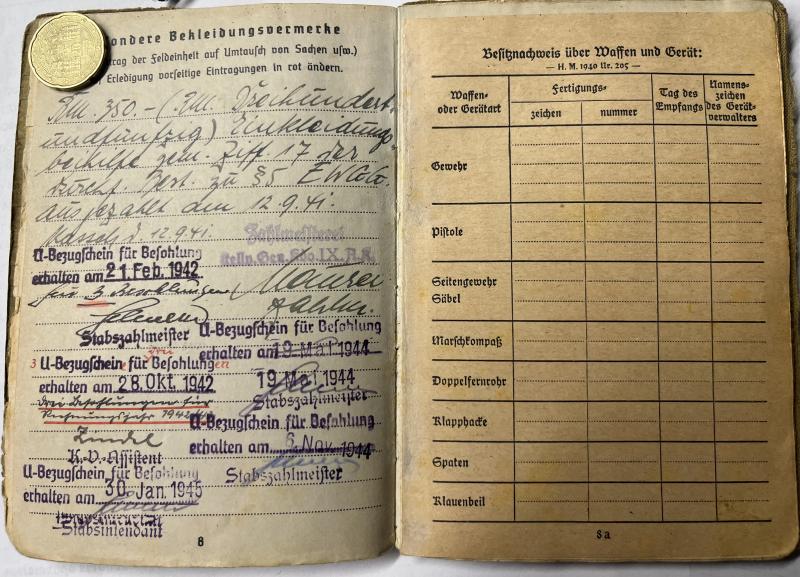 ondere Bekleidungsvermerke
rag der Feldeinheit auf Umtausch von Sachen usw.)
Erledigung vorseitige Eintragungen in rot ändern.
RM. 350.- (RM. Dreihundert
undfünfzig) Einkleidungs
beihilfe gem. Ziff. 17 der
Best. zu § 5
ausgezahlt den 12.9.41.
Kassel, d. 12.9.41.
Zahlmeisterei
stellv. Gen. Kdo. IX. A.K.
U-Bezugschein für Besohlung
erhalten am 21. Feb. 1942
für 3 Besohlungen
Stabszahlmeister
U-Bezugschein für Besohlung
erhalten am 19. Mai 1944
19. Mai 1944
Stabszahlmeister
3 U-Bezugschein für Besohlungen
erhalten am 28. Okt. 1942
drei Besohlungen für
Rechnungsjahr 1942
K.V.-Assistent
U-Bezugschein für Besohlung
erhalten am 6. Nov. 1944
Stabszahlmeister
U-Bezugschein für Besohlung
erhalten am 30. Jan. 1945
Stabsintendant
8
Besitznachweis über Waffen und Gerät:
— H. M. 1940 Nr. 205 —
Waffen-
oder Gerätart
Fertigungs-
zeichen
nummer
Tag des
Empfangs
Namens-
zeichen
des Gerät-
verwalters
Gewehr
Pistole
Seitengewehr
Säbel
Marschkompaß
Doppelfernrohr
Klapphacke
Spaten
Klauenbeil
8a